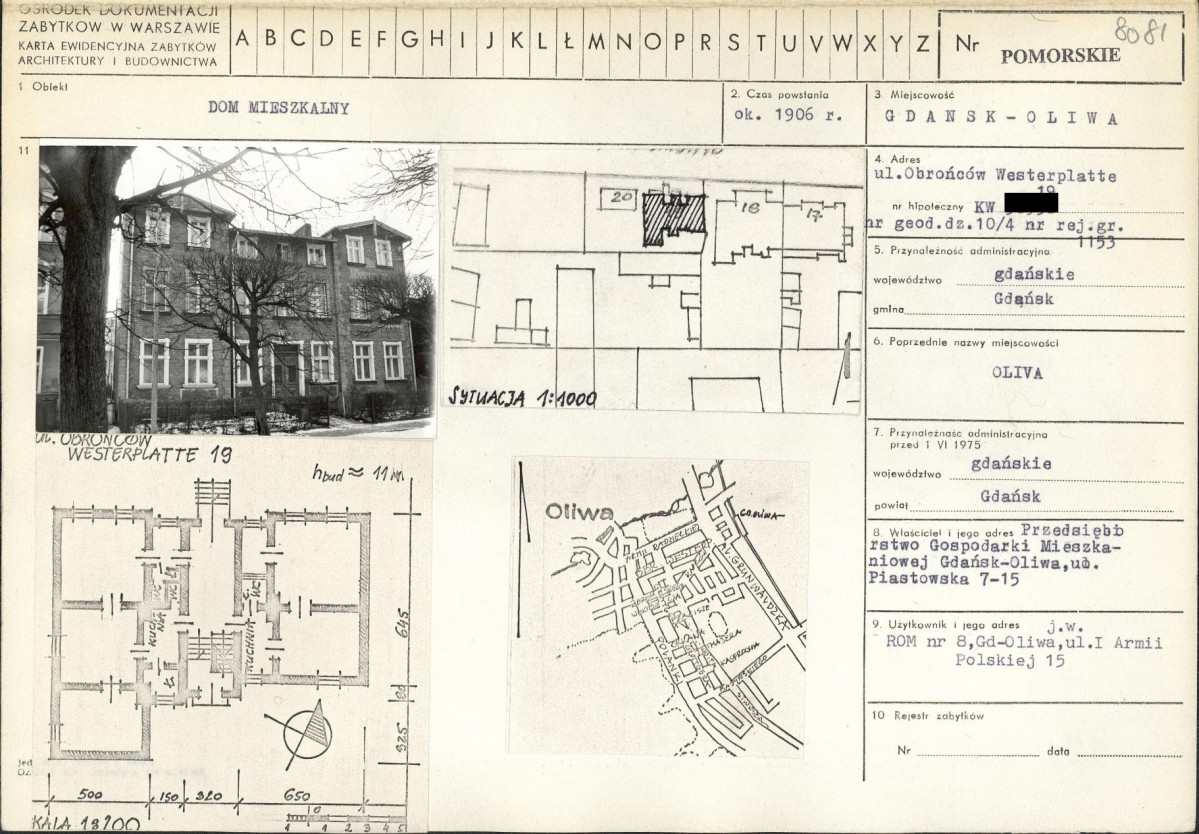 OŚRODEK DOKUMENTACJI
ZABYTKÓW W WARSZAWIE
KARTA EWIDENCYJNA ZABYTKÓW
ARCHITEKTURY I BUDOWNICTWA
A B C D E F G H I J K L Ł M N O P R S T U V W X Y Z
Nr
8081
POMORSKIE
1 Obiekt
DOM MIESZKALNY
2. Czas powstania
ok. 1906 r.
3 Miejscowość
GDANSK-OLIWA
11
4. Adres
ul.Obrońców Westerplatte
19
nr hipoteczny KW
nr geod.dz.10/4 nr rej.gr.
1153
5. Przynależność administracyjna
województwo gdańskie
gmina Gdańsk
6. Poprzednie nazwy miejscowości
OLIVA
7. Przynależność administracyjna
przed 1 VI 1975
województwo gdańskie
powiat Gdańsk
8. Właściciel i jego adres Przedsiębb
rstwo Gospodarki Mieszka-
niowej Gdańsk-Oliwa,ul.
Piastowska 7-15
9. Użytkownik i jego adres j.w.
ROM nr 8,Gd-Oliwa,ul.I Armii
Polskiej 15
10 Rejestr zabytków
Nr data
20
18
17
SYTUACJA 1:1000
UL. OBROŃCÓW
WESTERPLATTE 19
hbud ≈ 11 m
KUCHNIA
WC
Ł
KUCHNIA
Ł.
WC
645
925
500 150 320 650
0
1 1 2 3 4 5
Oliwa
GD.OLIWA
ARMII RADZIECKIEJ
AL. GRUNWALDZKA
POLANKI
KASPROWICZA